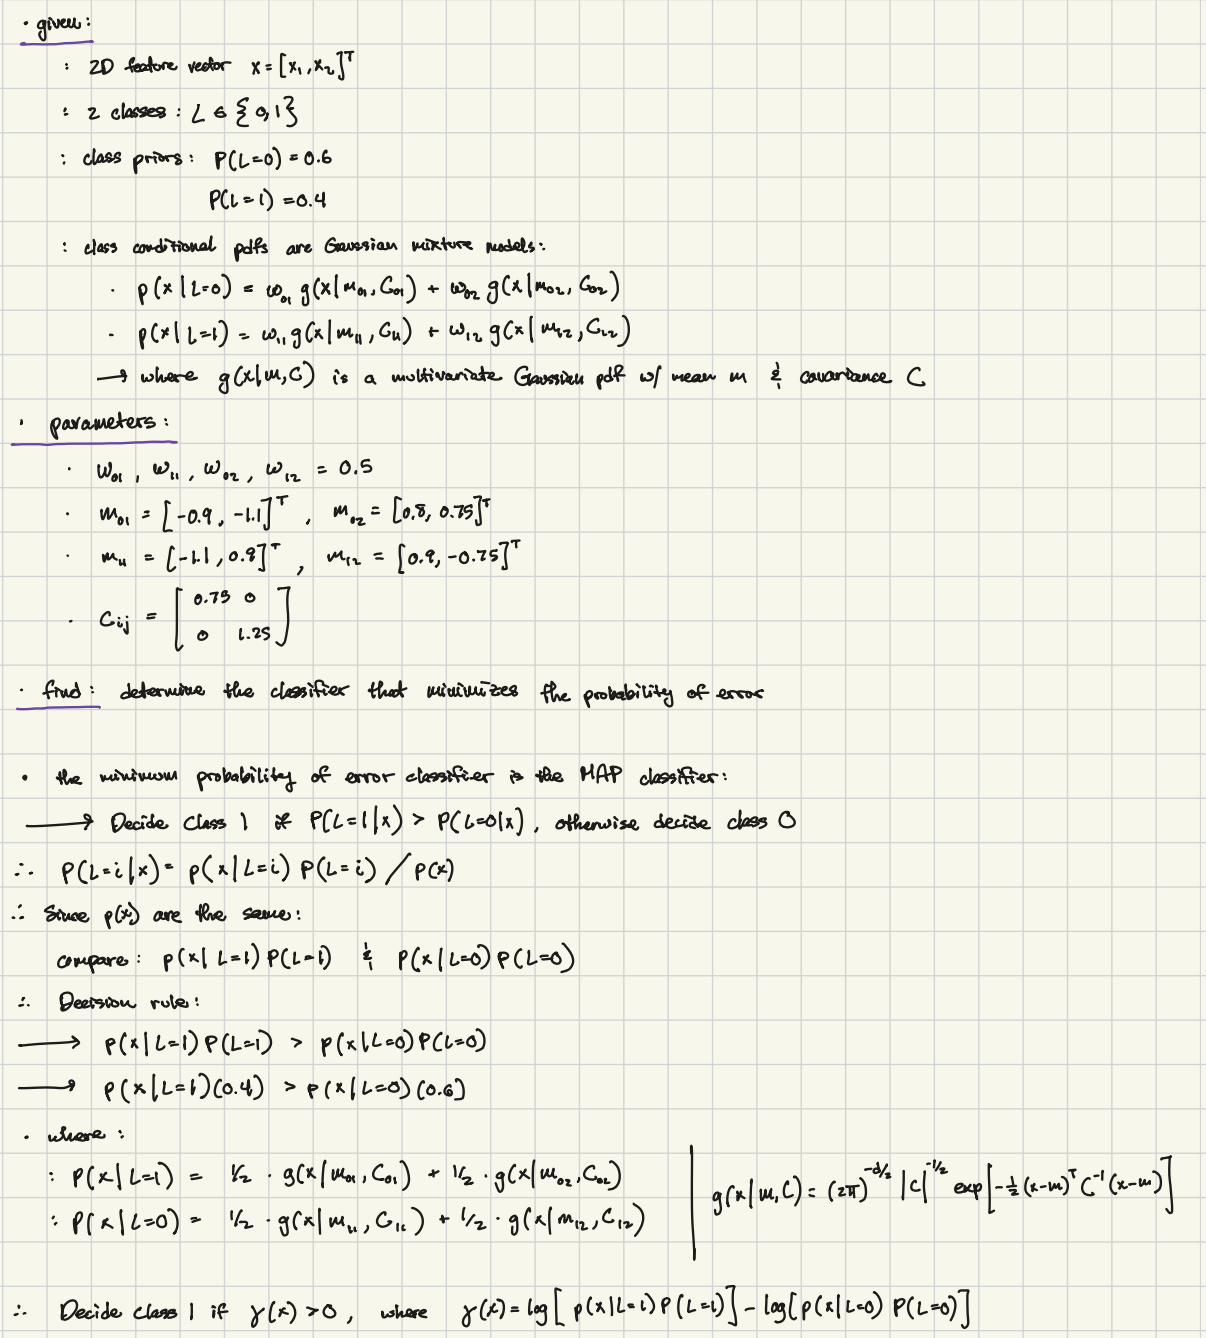 · given:
: 2D feature vector x = [x₁, x₂]ᵀ
: 2 classes: L ∈ {0,1}
: class priors: P(L=0) = 0.6
P(L=1) = 0.4
: class conditional pdfs are Gaussian mixture models:
· p(x|L=0) = ω₀₁ g(x|m₀₁, C₀₁) + ω₀₂ g(x|m₀₂, C₀₂)
· p(x|L=1) = ω₁₁ g(x|m₁₁, C₁₁) + ω₁₂ g(x|m₁₂, C₁₂)
→ where g(x|m,C) is a multivariate Gaussian pdf w/ mean m & covariance C
· parameters:
· ω₀₁, ω₁₁, ω₀₂, ω₁₂ = 0.5
· m₀₁ = [-0.9, -1.1]ᵀ, m₀₂ = [0.8, 0.75]ᵀ
· m₁₁ = [-1.1, 0.9]ᵀ, m₁₂ = [0.9, -0.75]ᵀ
· Cᵢⱼ = [0.75 0
0 1.25]
· find: determine the classifier that minimizes the probability of error
· the minimum probability of error classifier is the MAP classifier:
→ Decide Class 1 if P(L=1|x) > P(L=0|x), otherwise decide class 0
∴ P(L=i|x) = p(x|L=i) P(L=i) / p(x)
∴ Since p(x) are the same:
compare: p(x|L=1) P(L=1) & p(x|L=0) P(L=0)
∴ Decision rule:
→ p(x|L=1) P(L=1) > p(x|L=0) P(L=0)
→ p(x|L=1)(0.4) > p(x|L=0)(0.6)
· where:
: P(x|L=1) = 1/2 · g(x|m₀₁, C₀₁) + 1/2 · g(x|m₀₂, C₀₂)
: P(x|L=0) = 1/2 · g(x|m₁₁, C₁₁) + 1/2 · g(x|m₁₂, C₁₂)
g(x|m,C) = (2π)^(-d/2) |C|^(-1/2) exp[-1/2 (x-m)ᵀ C⁻¹ (x-m)]
∴ Decide class 1 if γ(x) > 0, where γ(x) = log[p(x|L=1) P(L=1)] - log[p(x|L=0) P(L=0)]